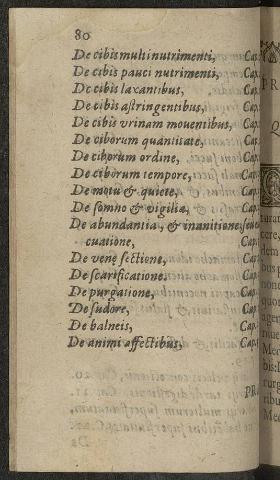 80
De cibis multi nutrimenti, Cap.
De cibis pauci nutrimenti, Cap.
De cibis laxantibus, Cap.
De cibis astringentibus, Cap.
De cibis vrinam mouentibus, Cap.
De ciborum quantitate, Cap.
De ciborum ordine, Cap.
De ciborum tempore, Cap.
De motu & quiete, Cap.
De somno & vigilia, Cap.
De abundantia, & inanitione
cuatione, Cap.
De venę sectione, Cap.
De scarificatione, Cap.
De purgatione, Cap.
De sudore, Cap.
De balneis, Cap.
De animi affectibus, Cap.
PR